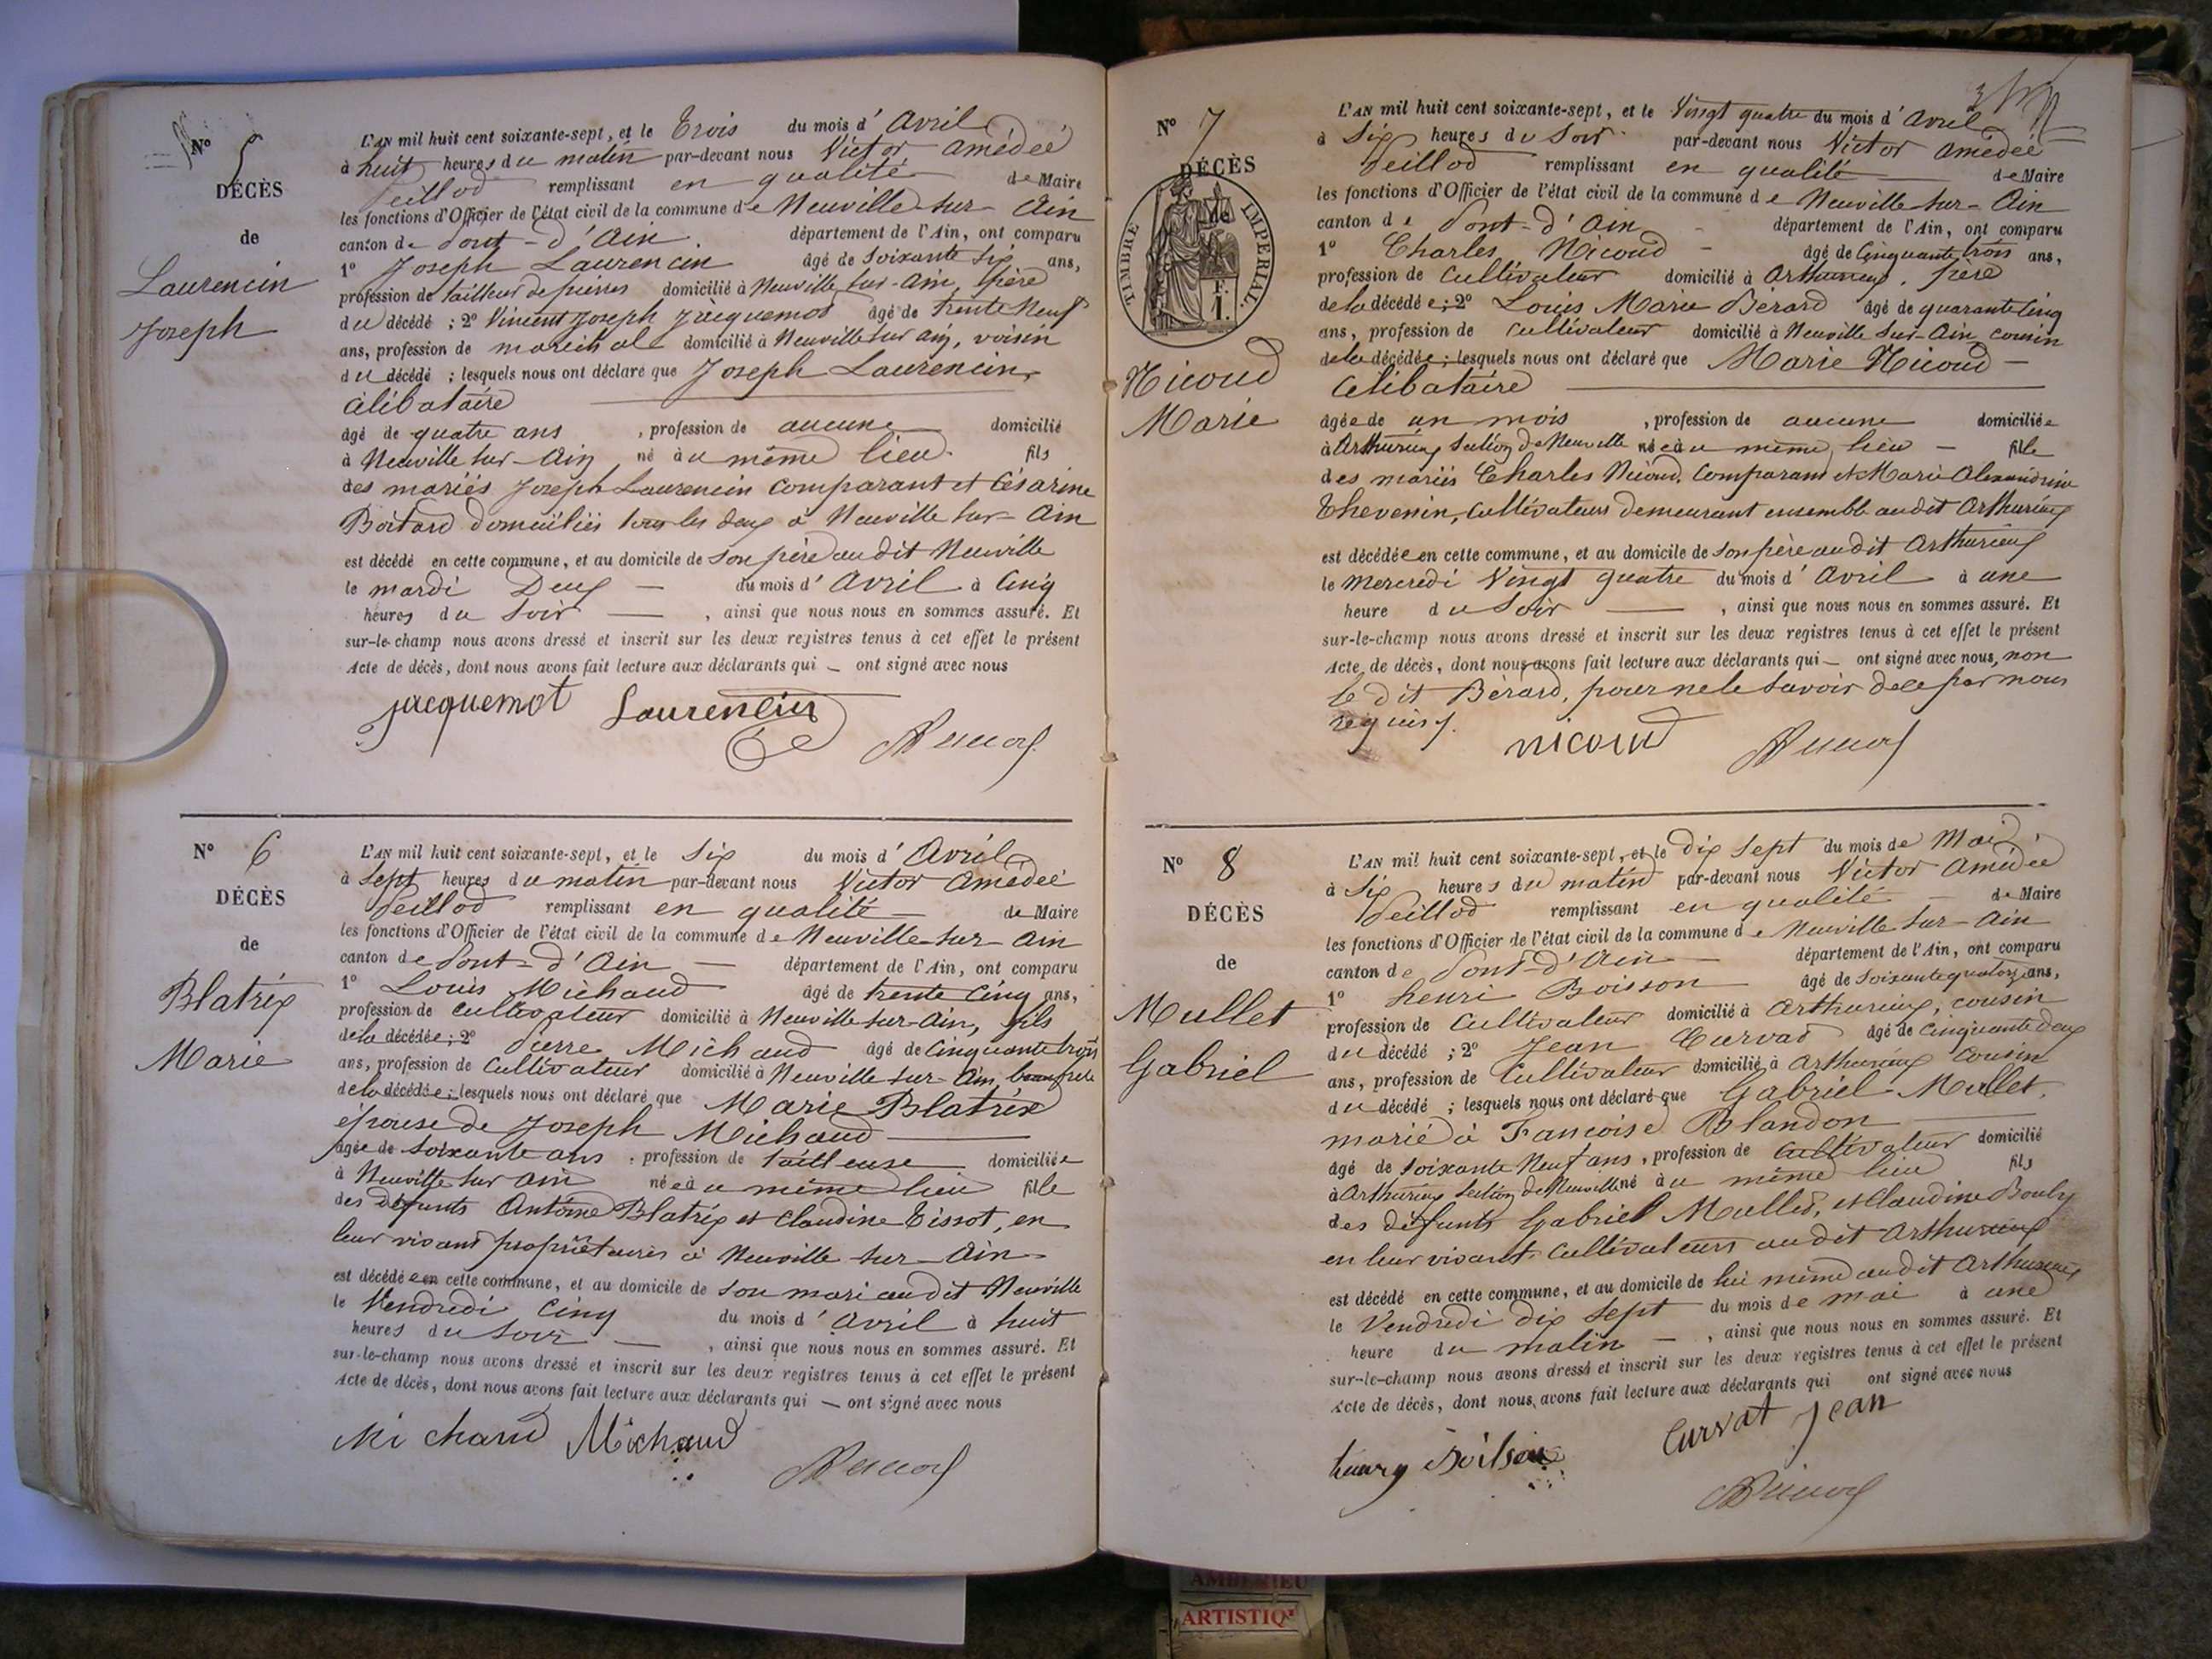 Nº 5
DÉCÈS
de
Laurencin
Joseph
L'AN mil huit cent soixante-sept, et le Trois du mois d'Avril
à huit heures du matin par-devant nous Victor Amédée
Peillod remplissant en qualité de Maire
les fonctions d'Officier de l'état civil de la commune de Neuville-sur-Ain
canton de Pont-d'Ain. département de l'Ain, ont comparu
1º Joseph Laurencin âgé de soixante six ans,
profession de tailleur de pierres domicilié à Neuville-sur-Ain, père
du décédé ; 2º Vincent Joseph Jacquemot âgé de trente neuf
ans, profession de maréchal domicilié à Neuville sur ain, voisin
du décédé ; lesquels nous ont déclaré que Joseph Laurencin,
célibataire
âgé de quatre ans , profession de aucune domicilié
à Neuville sur-Ain né au même lieu. fils
des mariés Joseph Laurencin comparant et Césarine
Boitard domiciliés tous les deux à Neuville sur-Ain
est décédé en cette commune, et au domicile de son père audit Neuville
le mardi Deux du mois d'Avril à Cinq
heures du soir , ainsi que nous nous en sommes assuré. Et
sur-le-champ nous avons dressé et inscrit sur les deux registres tenus à cet effet le présent
Acte de décès, dont nous avons fait lecture aux déclarants qui — ont signé avec nous
jacquemot Laurencin
Nº 6
DÉCÈS
de
Blatrix
Marie
L'AN mil huit cent soixante-sept, et le Six du mois d'Avril
à Sept heures du matin par-devant nous Victor Amédée
Peillod remplissant en qualité — de Maire
les fonctions d'Officier de l'état civil de la commune de Neuville-sur-Ain
canton de Pont-d'Ain — département de l'Ain, ont comparu
1º Louis Michaud âgé de trente Cinq ans,
profession de cultivateur domicilié à Neuville-sur-Ain, fils
de la décédée ; 2º Pierre Michaud âgé de Cinquante trois
ans, profession de Cultivateur domicilié à Neuville sur-Ain, beau frère
de la décédée ; lesquels nous ont déclaré que Marie Blatrix
épouse de Joseph Michaud
âgée de soixante ans , profession de tailleuse domiciliée
à Neuville sur ain née au même lieu fille
des défunts Antoine Blatrix et Claudine Tissot, en
leur vivant propriétaires à Neuville-sur-Ain
est décédée en cette commune, et au domicile de son mari audit Neuville
le Vendredi Cinq du mois d'Avril à huit
heures du soir — , ainsi que nous nous en sommes assuré. Et
sur-le-champ nous avons dressé et inscrit sur les deux registres tenus à cet effet le présent
Acte de décès, dont nous avons fait lecture aux déclarants qui — ont signé avec nous
Michaud Michaud
Nº 7
DÉCÈS
de
TIMBRE IMPERIAL.
F.
1.
Nicoud
Marie
L'AN mil huit cent soixante-sept, et le Vingt quatre du mois d'Avril
à Six heures du soir par-devant nous Victor Amédée
Peillod remplissant en qualité — de Maire
les fonctions d'Officier de l'état civil de la commune de Neuville-sur-Ain
canton de Pont-d'Ain département de l'Ain, ont comparu
1º Charles Nicoud — âgé de Cinquante trois ans,
profession de Cultivateur domicilié à Arthurieux, père
de la décédée ; 2º Louis Marie Bérard âgé de quarante cinq
ans, profession de cultivateur domicilié à Neuville sur-Ain, cousin
de la décédée ; lesquels nous ont déclaré que Marie Nicoud —
célibataire
âgée de un mois , profession de aucune domiciliée
à Arthurieux section de Neuville née au même lieu — fille
des mariés Charles Nicoud, comparant et Marie Alexandrine
Thevenin, cultivateurs demeurant ensemble audit Arthurieux
est décédée en cette commune, et au domicile de son père audit Arthurieux
le Mercredi Vingt quatre du mois d'Avril à une
heure du soir — , ainsi que nous nous en sommes assuré. Et
sur-le-champ nous avons dressé et inscrit sur les deux registres tenus à cet effet le présent
Acte de décès, dont nous avons fait lecture aux déclarants qui — ont signé avec nous, non
le dit Bérard, pour ne le savoir de ce par nous
requis.
nicoud
Nº 8
DÉCÈS
de
Mullet
Gabriel
L'AN mil huit cent soixante-sept, et le dix sept du mois de Mai
à Six heures du matin par-devant nous Victor Amédée
Peillod remplissant en qualité — de Maire
les fonctions d'Officier de l'état civil de la commune de Neuville sur-Ain
canton de Pont-d'Ain département de l'Ain, ont comparu
1º henri Boisson âgé de soixante quatorze ans,
profession de Cultivateur domicilié à Arthurieux, cousin
du décédé ; 2º Jean Curvat âgé de cinquante deux
ans, profession de Cultivateur domicilié à Arthurieux Cousin
du décédé ; lesquels nous ont déclaré que Gabriel Mullet,
marié à Francoise Blandon
âgé de soixante Neuf ans , profession de Cultivateur domicilié
à Arthurieux section de Neuville né au même lieu fils
des défunts Gabriel Mullet, et Claudine Bouly
en leur vivant Cultivateurs audit Arthurieux
est décédé en cette commune, et au domicile de lui même audit Arthurieux
le Vendredi dix sept du mois de mai à une
heure du matin — , ainsi que nous nous en sommes assuré. Et
sur-le-champ nous avons dressé et inscrit sur les deux registres tenus à cet effet le présent
Acte de décès, dont nous avons fait lecture aux déclarants qui ont signé avec nous
Curvat Jean
henry Boison
AMBERIEU
ARTISTIQ